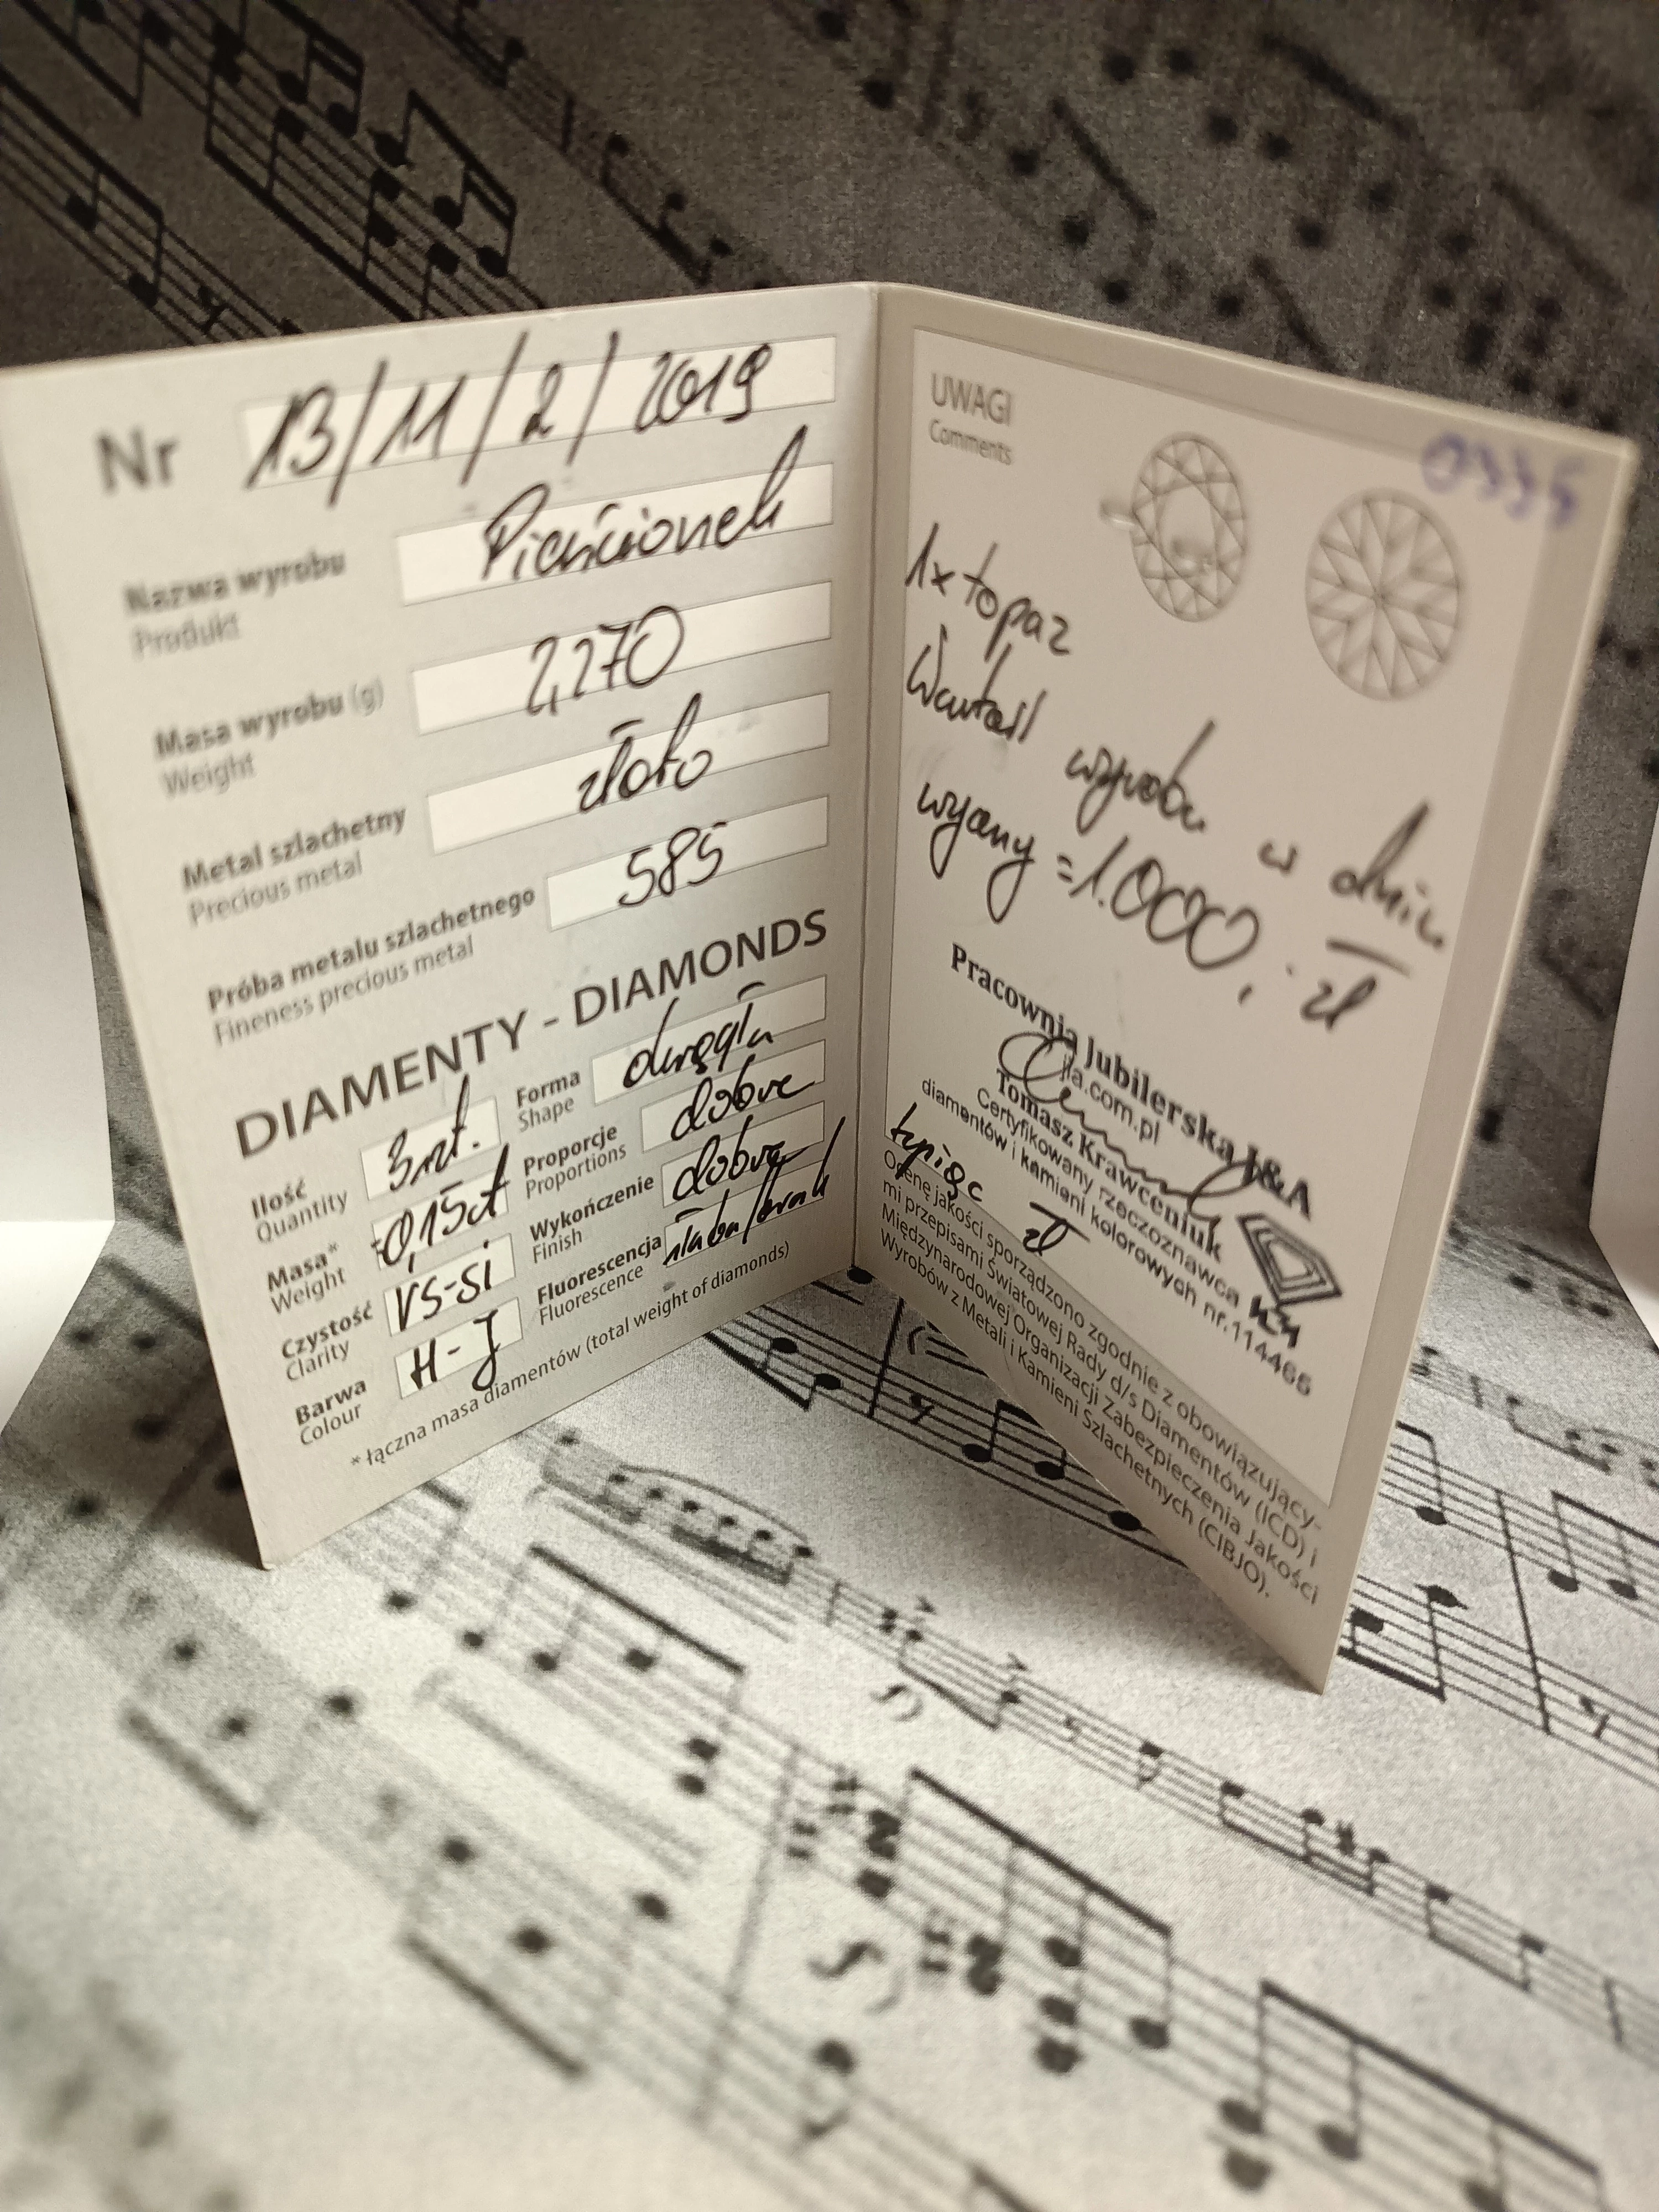 Nr 13/11/2/2019
Nazwa wyrobu Pierścionek
Produkt
Masa wyrobu (g) 2,270
Weight
Metal szlachetny złoto
Precious metal
Próba metalu szlachetnego 585
Fineness precious metal
DIAMENTY - DIAMONDS
Ilość 3szt.
Quantity
Masa* 0,15ct
Weight
Czystość VS-SI
Clarity
Barwa H-J
Colour
Forma okrągła
Shape
Proporcje dobre
Proportions
Wykończenie dobre
Finish
Fluorescencja słaba/brak
Fluorescence
* łączna masa diamentów (total weight of diamonds)
UWAGI
Comments
1x topaz
Wartość wyrobu w dniu
wyceny = 1.000,- zł
Pracownia Jubilerska J&A
jia.com.pl
Tomasz Krawceniuk
Certyfikowany rzeczoznawca
diamentów i kamieni kolorowych nr.114466
tysiąc zł
Ocenę jakości sporządzono zgodnie z obowiązujący-
mi przepisami Światowej Rady d/s Diamentów (ICD) i
Międzynarodowej Organizacji Zabezpieczenia Jakości
Wyrobów z Metali i Kamieni Szlachetnych (CIBJO).